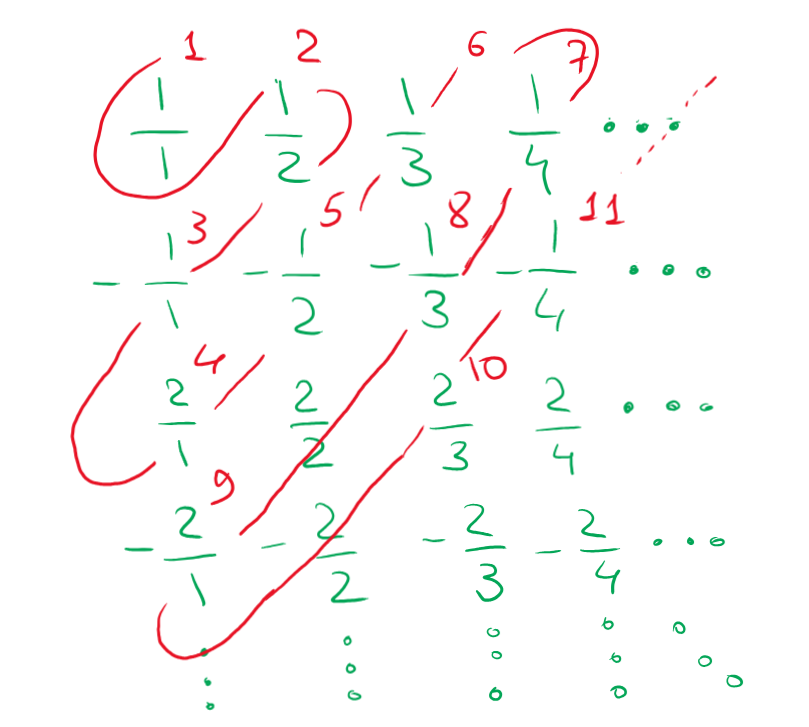 1 2 6 7
1/1 1/2 1/3 1/4 ...
3 5 8 11
-1/1 -1/2 -1/3 -1/4 ...
4 10
2/1 2/2 2/3 2/4 ...
9
-2/1 -2/2 -2/3 -2/4 ...